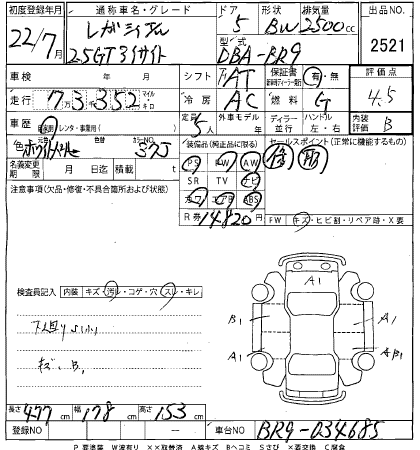 初度登録年月 通称車名・グレード ドア 形状 排気量 出品NO.
22/7月 レガシィワゴン 5 BW 2500cc
2.5GT アイサイト 型式 DBA-BR9 2521
車検 年 月 シフト AT 保証書 有・無 評価点
走行 73352 マイル キロ 冷房 AC 燃料 G 4.5
車歴 自家用・レンタ・事業用( ) 定員 5人 外車モデル 年 ディーラー 並行 ハンドル 左・右 内装評価 B
色 ホワイトパール 色替 カラーNO 37J 装備品(純正品に限る) セールスポイント(正常に機能するもの)
名義変更期限 月 日迄 積載 t PS PW AW
注意事項(欠品・修復・不具合箇所および状態) SR TV ナビ
カワ エアB ABS
R券 14820円 FW キズ・ヒビ割・リペア跡・X要
検査員記入 内装 キズ・汚レ・コゲ・穴・スレ・キレ
A1
B1 A1
A1
下回りサビ
キズ、B1
長さ 477cm 幅 178cm 高さ 153cm
登録NO — 車台NO BR9-034685
P要塗装 W波有り XX取替済 A線キズ Bヘコミ Sさび X要交換 C腐食